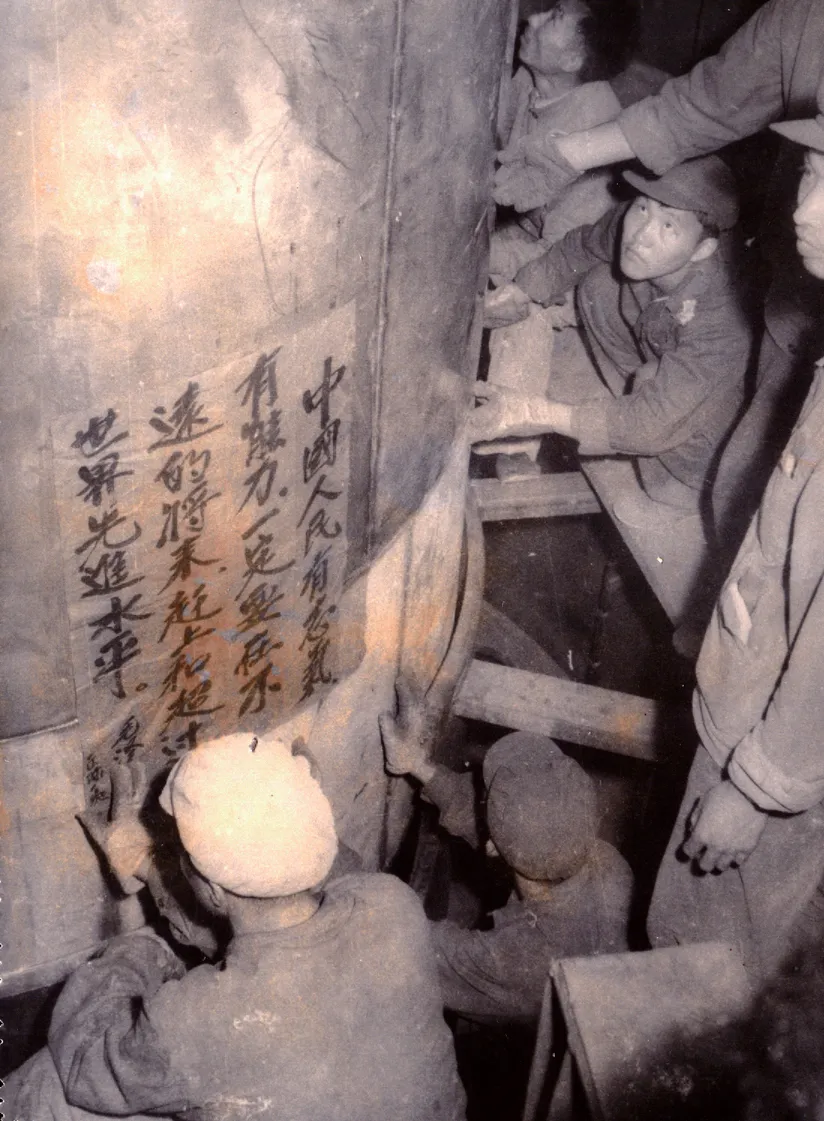 中國人民有志氣，
有能力，一定要在不
遠的將來，赶上和超过
世界先進水平。
毛泽